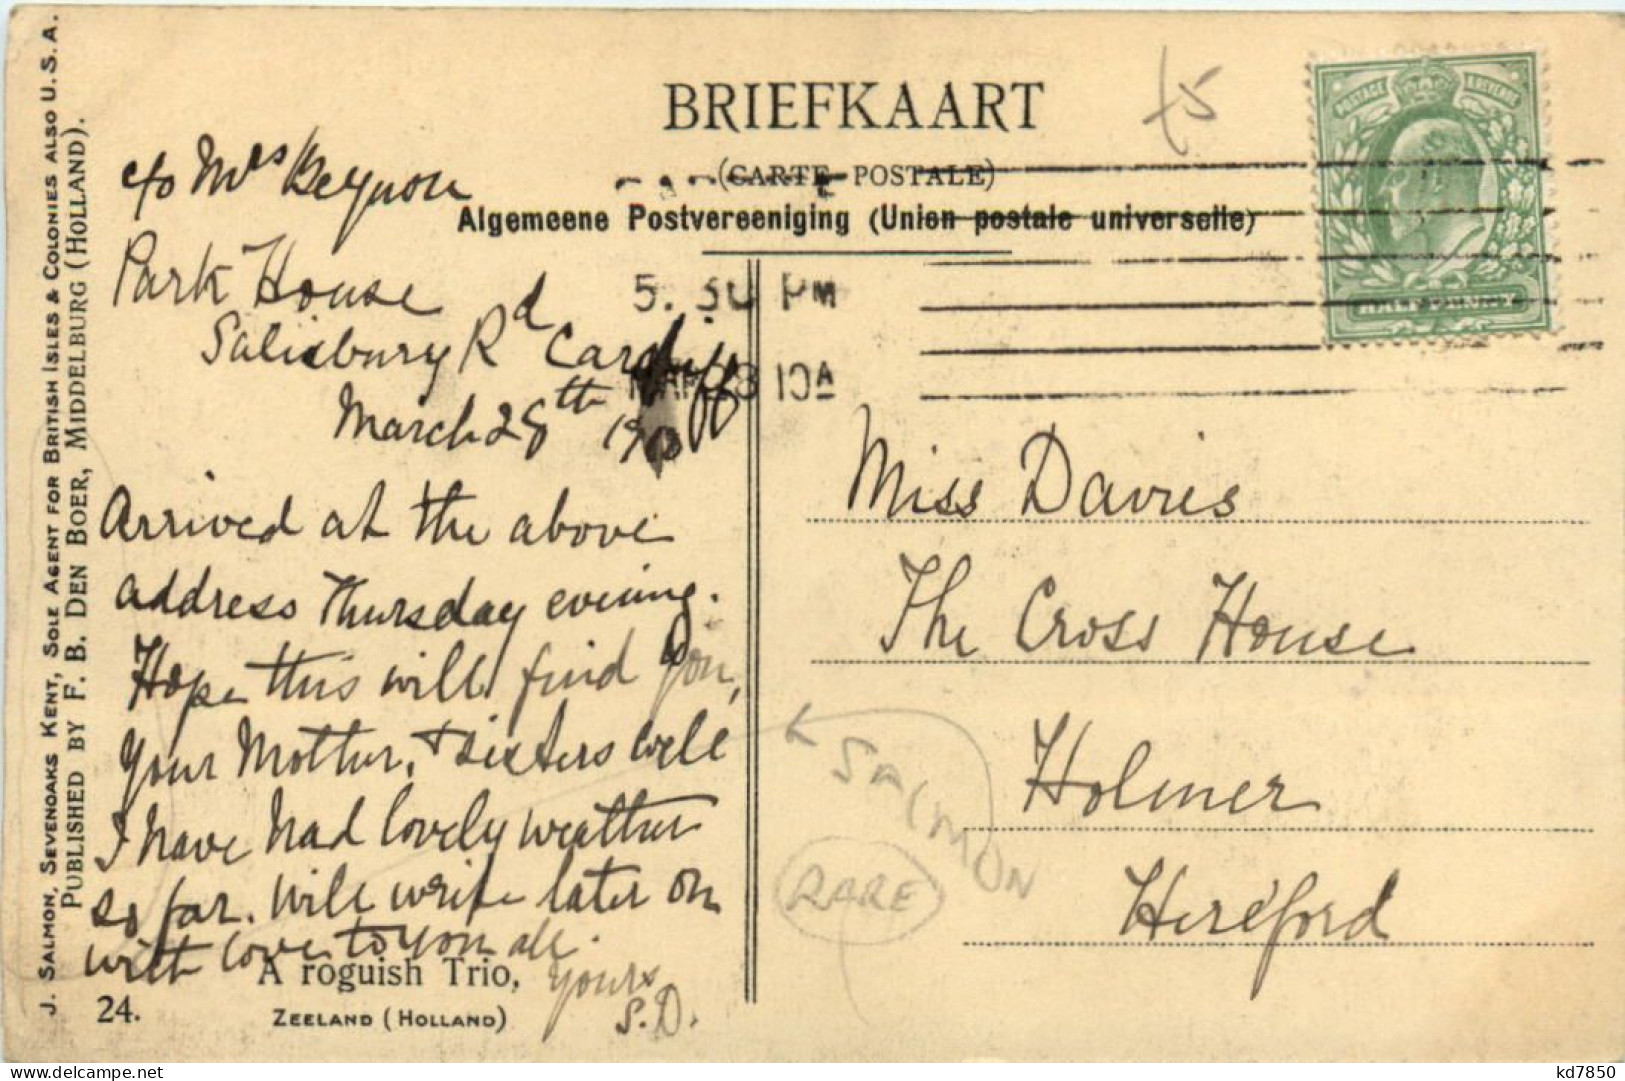 BRIEFKAART
(CARTE POSTALE)
Algemeene Postvereeniging (Union postale universelle)
J. SALMON, SEVENOAKS KENT, SOLE AGENT FOR BRITISH ISLES & COLONIES ALSO U.S.A.
PUBLISHED BY F. B. DEN BOER, MIDDELBURG (HOLLAND).
POSTAGE & REVENUE
HALF PENNY
5. 30 PM
MAR 28 10A
c/o Mrs Beynon
Park House
Salisbury Rd Cardiff
March 28th 1910
Arrived at the above
address Thursday evening.
Hope this will find you,
your Mother, & sisters well
I have had lovely weather
so far. Will write later on
with love to you all.
yours
S.D.
A roguish Trio,
24.
ZEELAND (HOLLAND)
Miss Davies
The Cross House
Holmer
Hereford
SALMON
RARE
kd7850